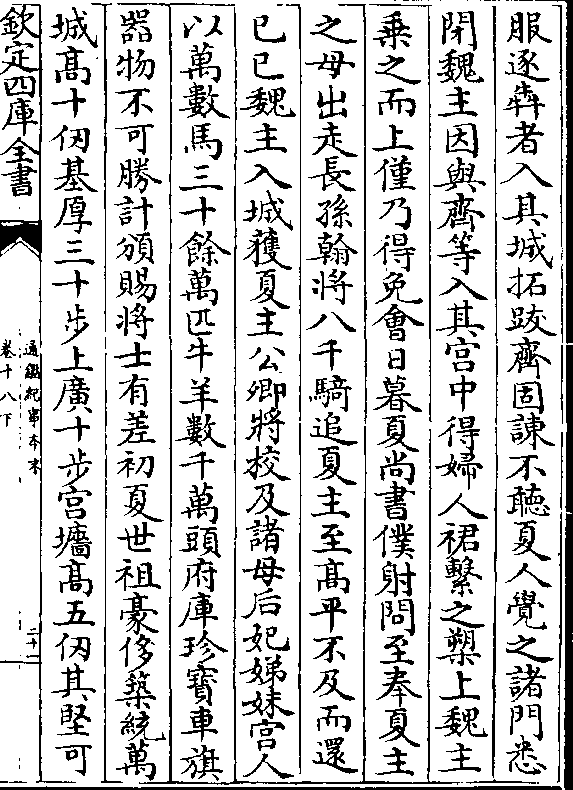 服逐犇者入其城拓跋齊固諌不聽夏人覺之諸門悉
閉魏主因與齊等入其宫中得婦人裙繫之槊上魏主
乗之而上僅乃得免會日暮夏尚書僕射問至奉夏主
之母出走長孫翰將八千騎追夏主至髙平不及而還
已巳魏主入城獲夏主公卿將校及諸母后妃娣妹宫人
以萬數馬三十餘萬匹牛羊數千萬頭府庫珍寳車旗
器物不可勝計頒賜將士有差初夏世祖豪侈築統萬
城髙十仭基厚三十步上廣十步宫墻髙五仭其堅可
欽定四庫全書
通鑑紀事本末
卷十八下
二十一